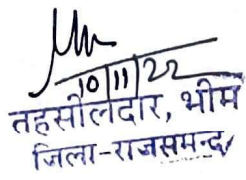 10/11/22
तहसीलदार, भीम
जिला-राजसमन्द